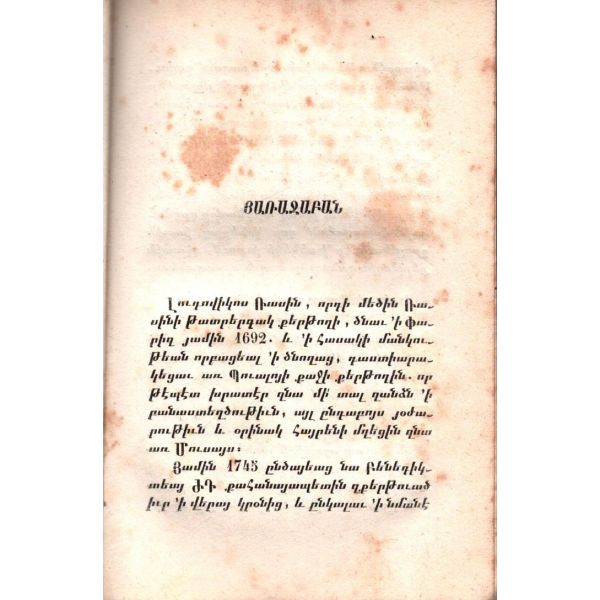 ՅԱՌԱՋԱԲԱՆ
Լուդովիկոս Ռասին, որդի մեծին Ռա-
սինի թատրերգակ քերթողի, ծնաւ ՚ի Փա-
րիզ յամին 1692. և ՚ի հասակի մանկու-
թեան որբացեալ ՚ի ծնողաց, դաստիարա-
կեցաւ առ Պուալոյի քաջի քերթողին. որ
թէպէտ խրատէր զնա մի՛ տալ զանձն ՚ի
բանաստեղծութիւն, այլ ընդաբոյս յօժա-
րութիւն և օրինակ հայրենի մղեցին զնա
առ Մուսայս։
Յամին 1745 ընծայեաց նա Բենեդիկ-
տեայ ԺԴ քահանայապետին զքերթուած
իւր ՚ի վերայ կրօնից, և ընկալաւ ՚ի նմանէ